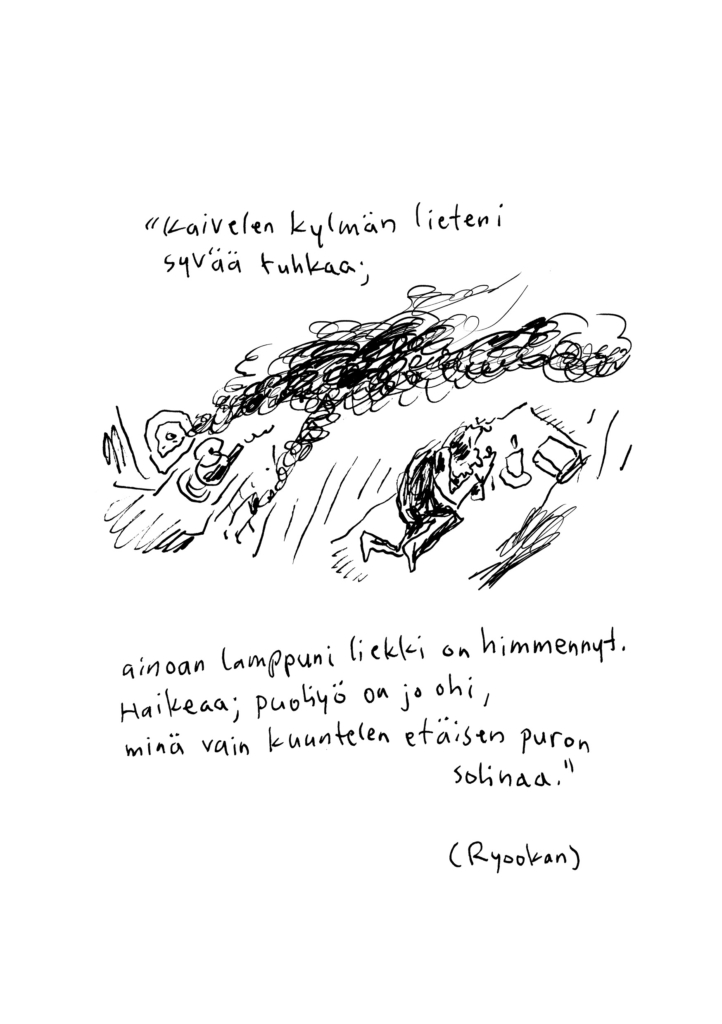 "Kaivelen kylmän lieteni
syvää tuhkaa;
ainoan lamppuni liekki on himmennyt.
Haikeaa; puoliyö on jo ohi,
minä vain kuuntelen etäisen puron
solinaa."
(Ryookan)